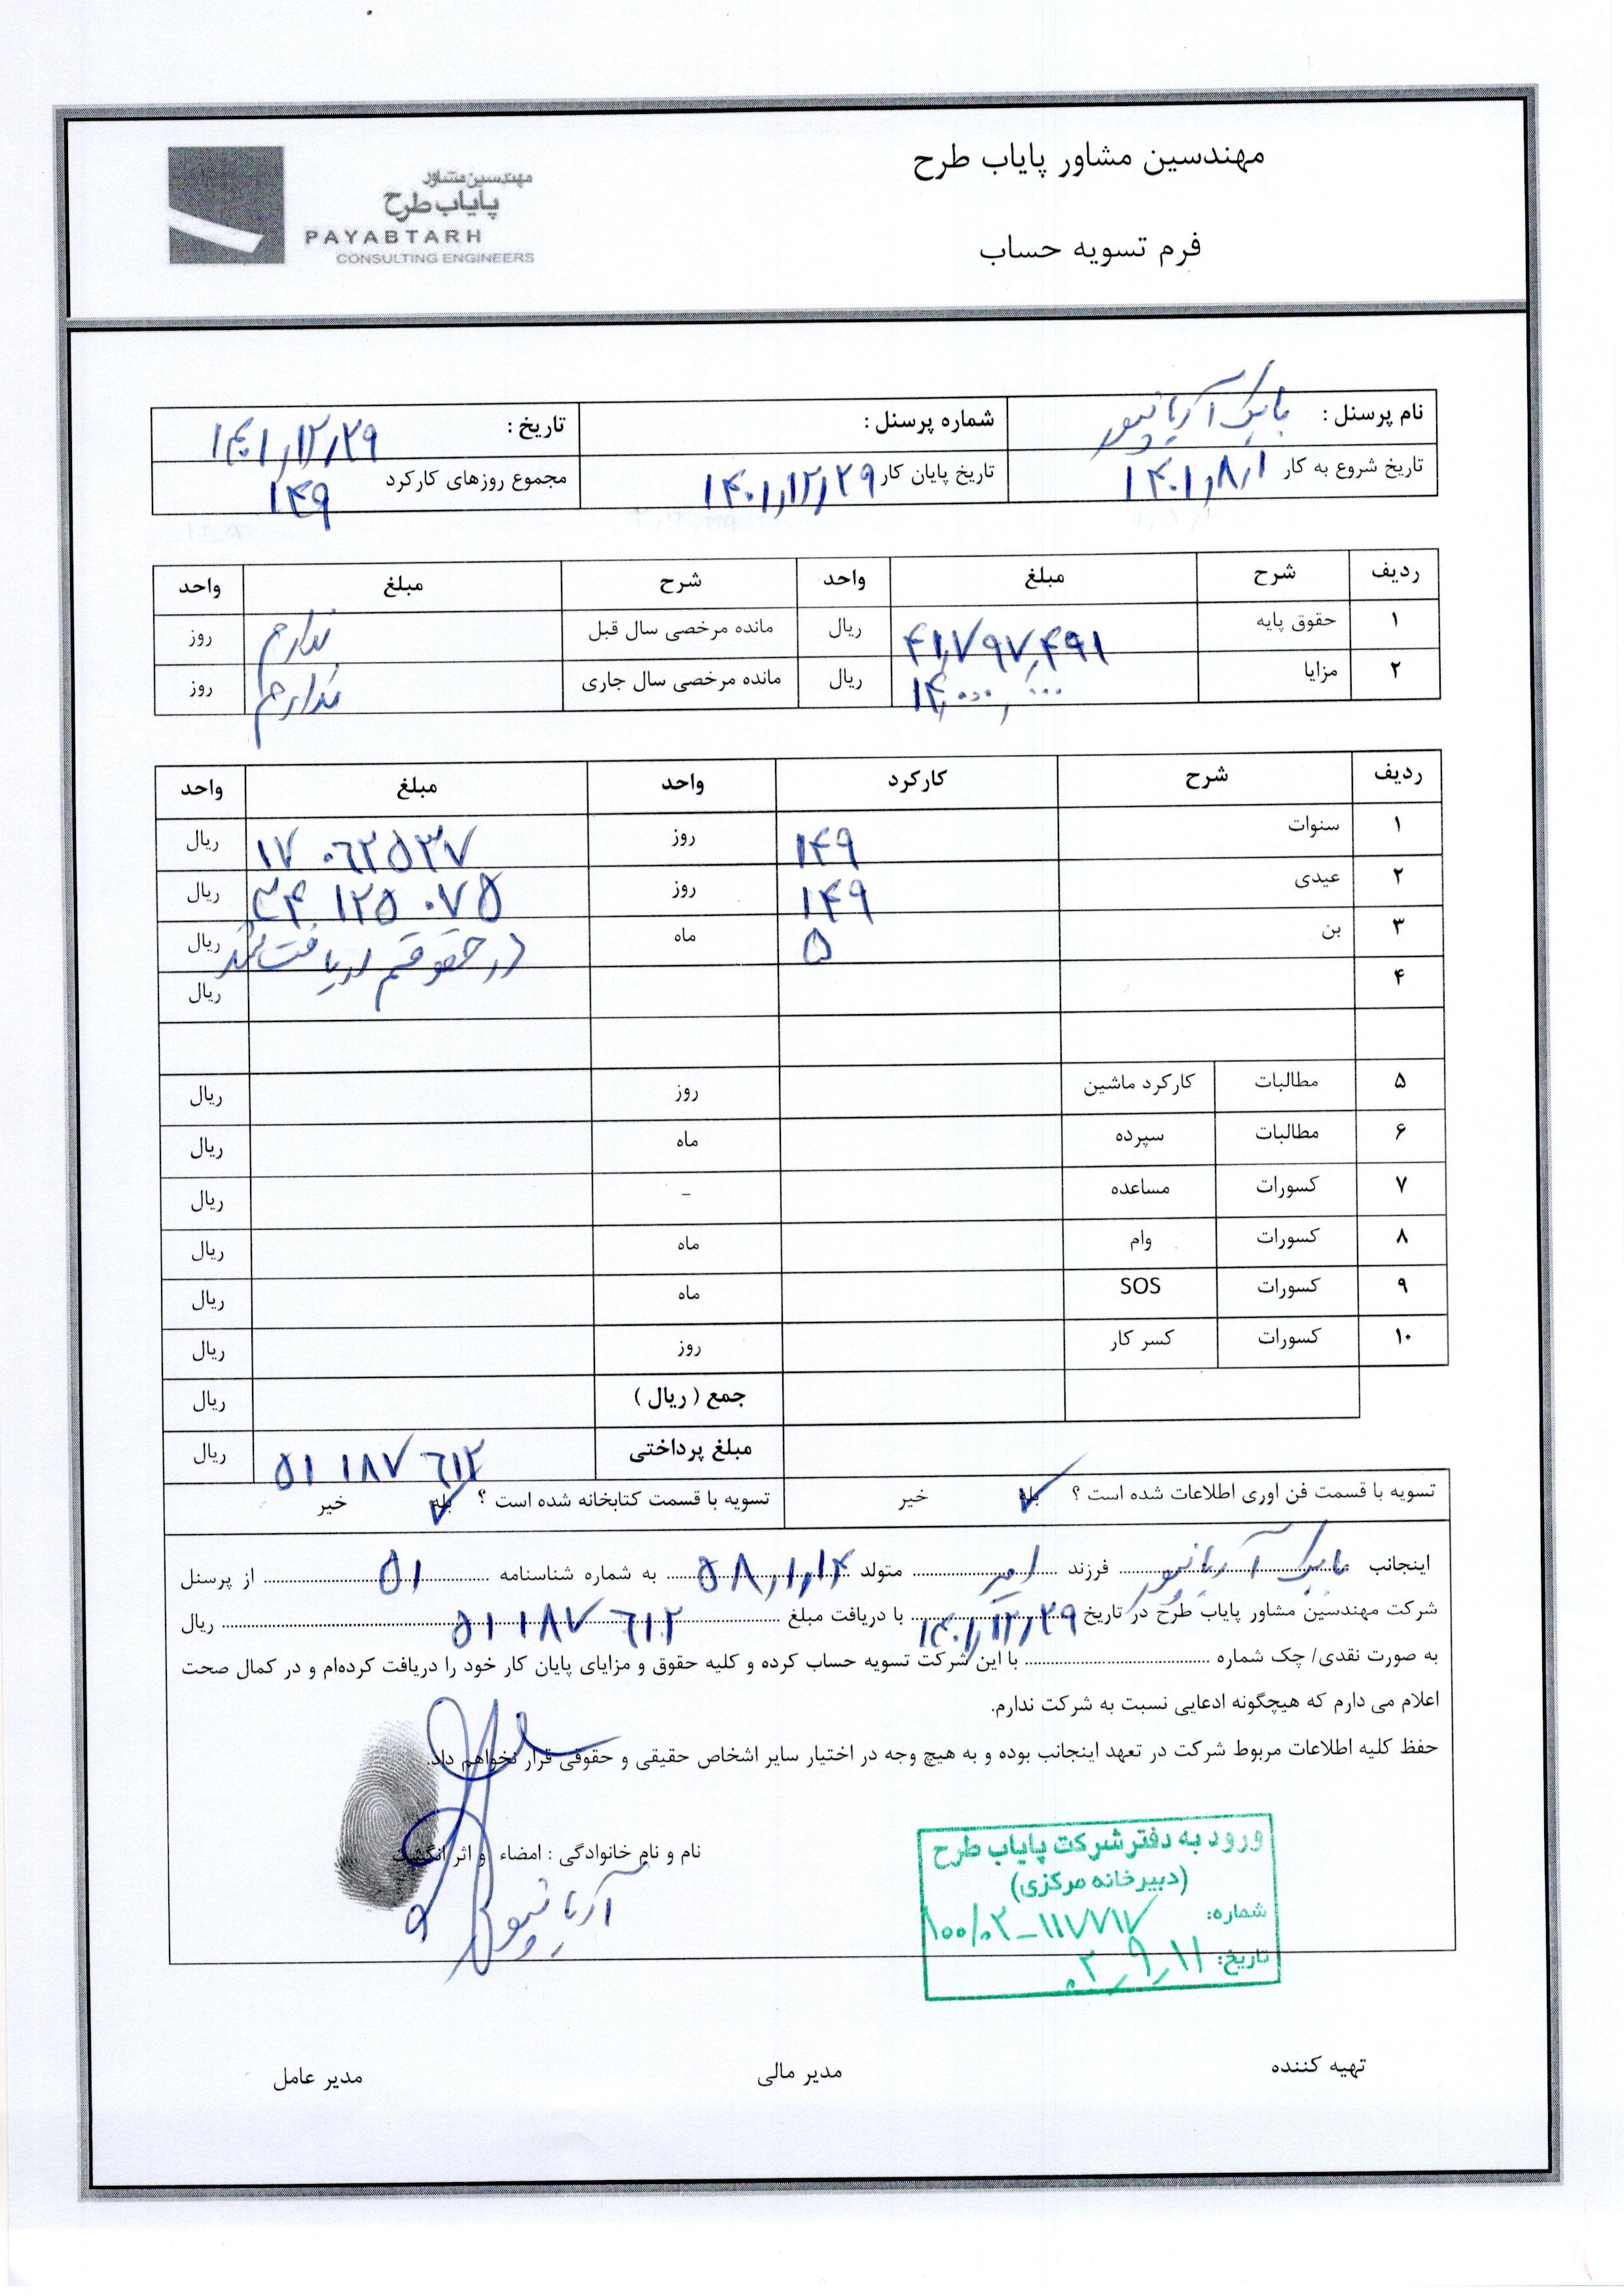 مهندسین مشاور پایاب طرح
فرم تسویه حساب
مهندسین مشاور
پایاب طرح
PAYABTARH
CONSULTING ENGINEERS
نام پرسنل : بابک آریانپور شماره پرسنل : تاریخ : ۱۴۰۱,۱۲,۲۹
تاریخ شروع به کار ۱۴۰۱,۸,۱ تاریخ پایان کار ۱۴۰۱,۱۲,۲۹ مجموع روزهای کارکرد ۱۴۹
ردیف شرح مبلغ واحد شرح مبلغ واحد
۱ حقوق پایه ۴۱,۷۹۷,۴۹۱ ریال مانده مرخصی سال قبل ندارم روز
۲ مزایا ۱۴,۰۰۰,۰۰۰ ریال مانده مرخصی سال جاری ندارم روز
ردیف شرح کارکرد واحد مبلغ واحد
۱ سنوات ۱۴۹ روز ۱۷ ۰۶۲ ۵۳۷ ریال
۲ عیدی ۱۴۹ روز ۳۴ ۱۲۵ ۰۷۵ ریال
۳ بن ۵ ماه در حقوقم دریافت شد ریال
۴ ریال
۵ مطالبات کارکرد ماشین روز ریال
۶ مطالبات سپرده ماه ریال
۷ کسورات مساعده - ریال
۸ کسورات وام ماه ریال
۹ کسورات SOS ماه ریال
۱۰ کسورات کسر کار روز ریال
جمع ( ریال ) ریال
مبلغ پرداختی ۵۱ ۱۸۷ ۶۱۲ ریال
تسویه با قسمت فن اوری اطلاعات شده است ؟ بله خیر تسویه با قسمت کتابخانه شده است ؟ بله خیر
اینجانب بابک آریانپور فرزند امیر متولد ۵۸,۱,۱۴ به شماره شناسنامه ۵۱ از پرسنل
شرکت مهندسین مشاور پایاب طرح در تاریخ ۱۴۰۱,۱۲,۲۹ با دریافت مبلغ ۵۱ ۱۸۷ ۶۱۲ ریال
به صورت نقدی/ چک شماره با این شرکت تسویه حساب کرده و کلیه حقوق و مزایای پایان کار خود را دریافت کرده‌ام و در کمال صحت
اعلام می دارم که هیچگونه ادعایی نسبت به شرکت ندارم.
حفظ کلیه اطلاعات مربوط شرکت در تعهد اینجانب بوده و به هیچ وجه در اختیار سایر اشخاص حقیقی و حقوقی قرار نخواهم داد.
نام و نام خانوادگی : امضاء و اثر انگشت
آریانپور
ورود به دفتر شرکت پایاب طرح
(دبیرخانه مرکزی)
شماره: ۱۰۰/۰۲_۱۱۷۷۱۷
تاریخ: ۰۲,۹,۱۱
تهیه کننده مدیر مالی مدیر عامل